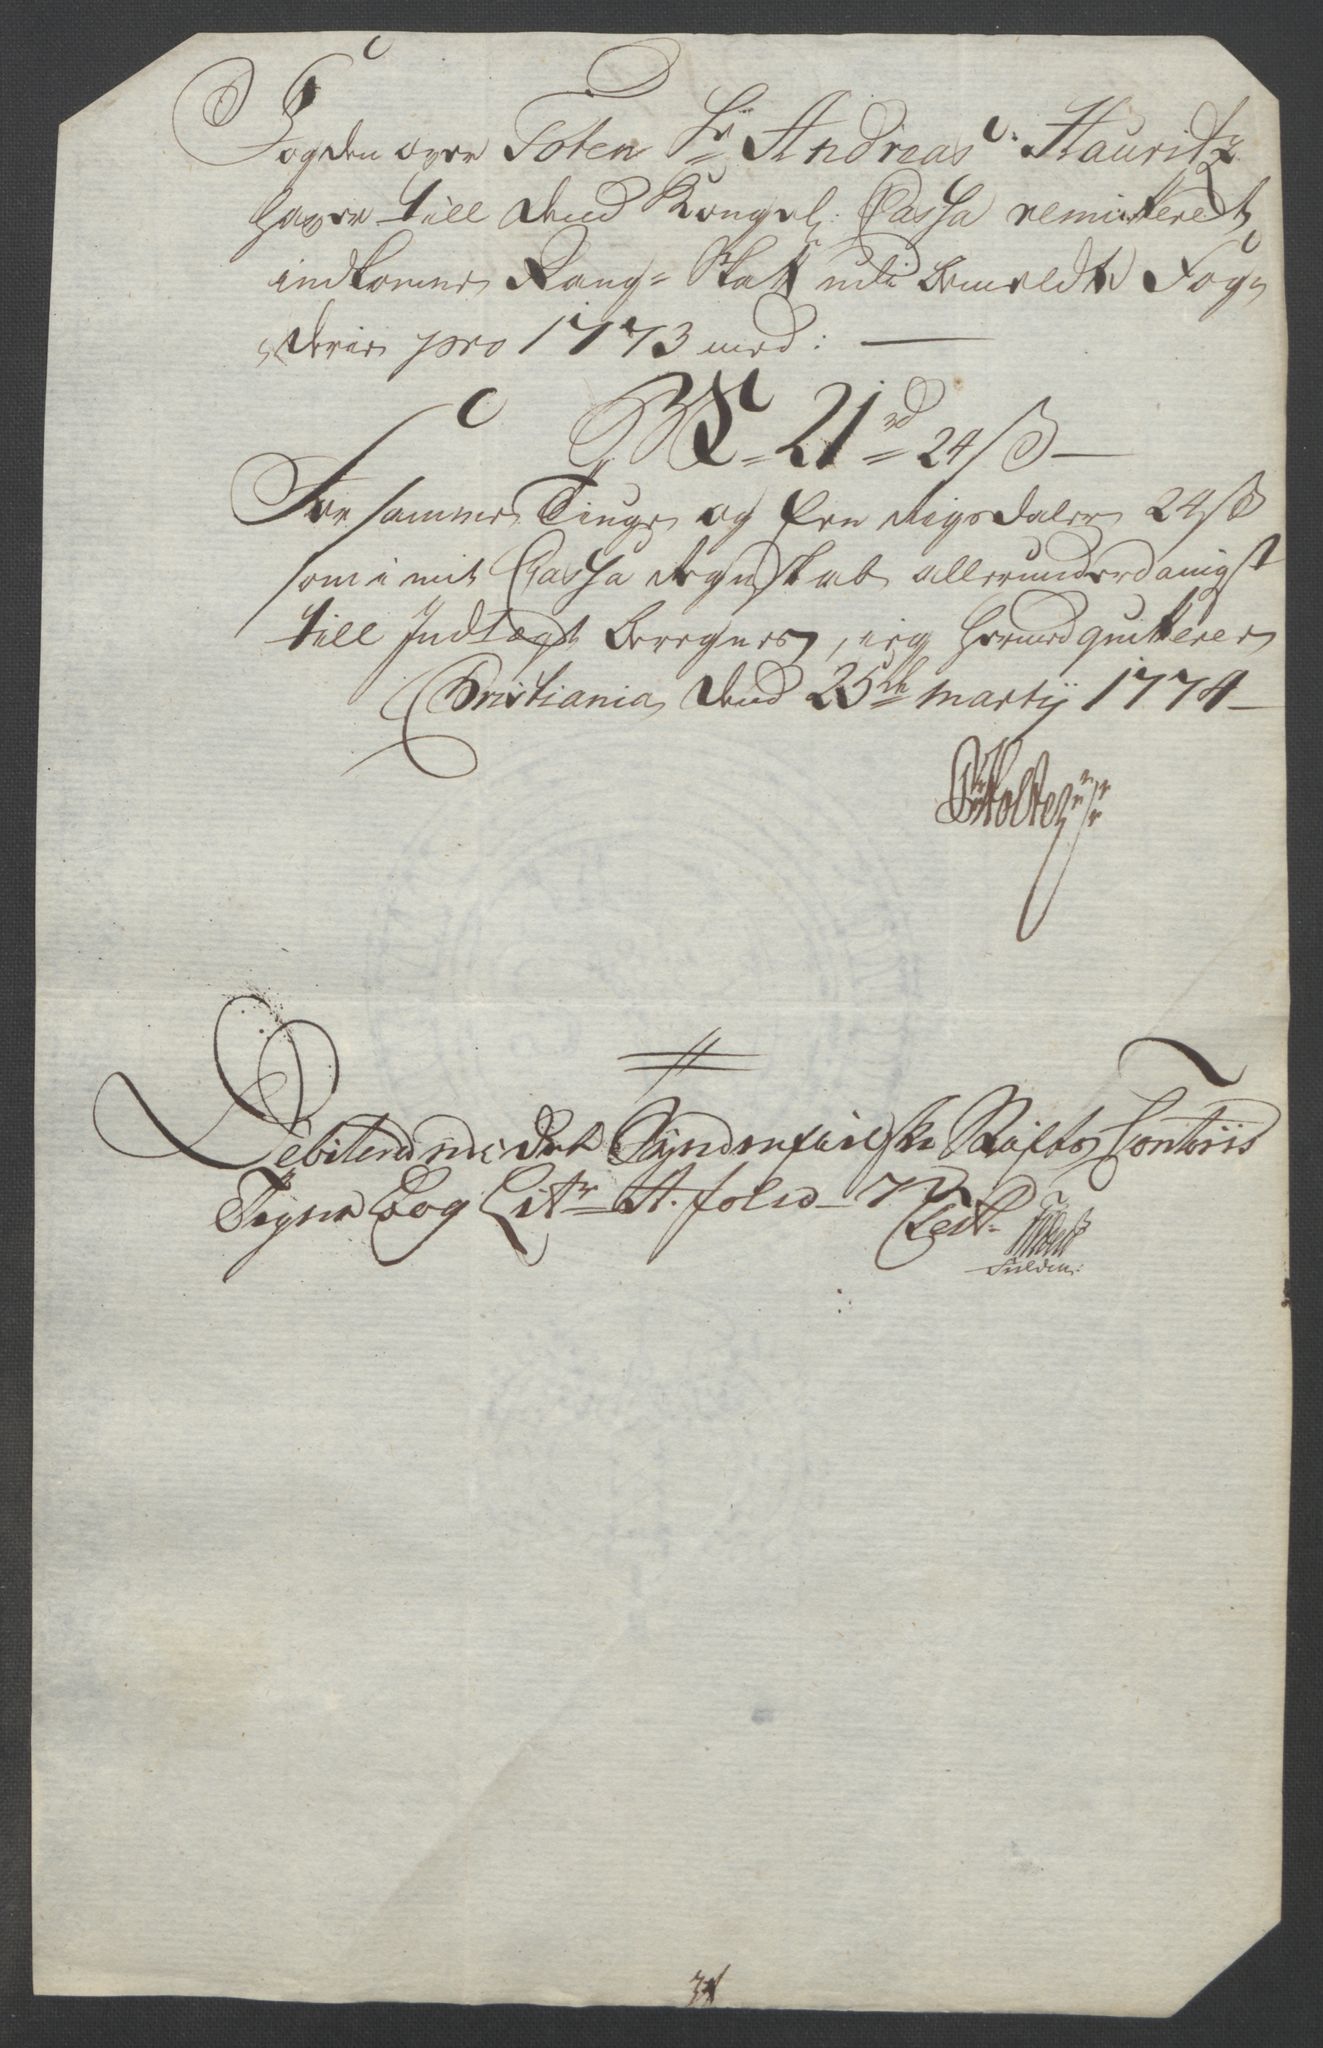 Fogden over Toten Hr Andreas Hauritz
haver till dend Kongel: Cassa remitteredt
indkomne Rang-Skatt udi bemeldte Fog-
derie pro 1773 med:
21 rd 24 ß
For samme Tiuge og Een Rigsdaler 24 ß
som i mit Cassa Regnskab allerunderdanigst
till Indtægt beregnes, ieg hermed quitterer
Christiania dend 25de Martij 1774
Holter
Debiterd ved det Syndenfieldske Contoirs
Tegne Bog Litr A. folio 7
Test.
31